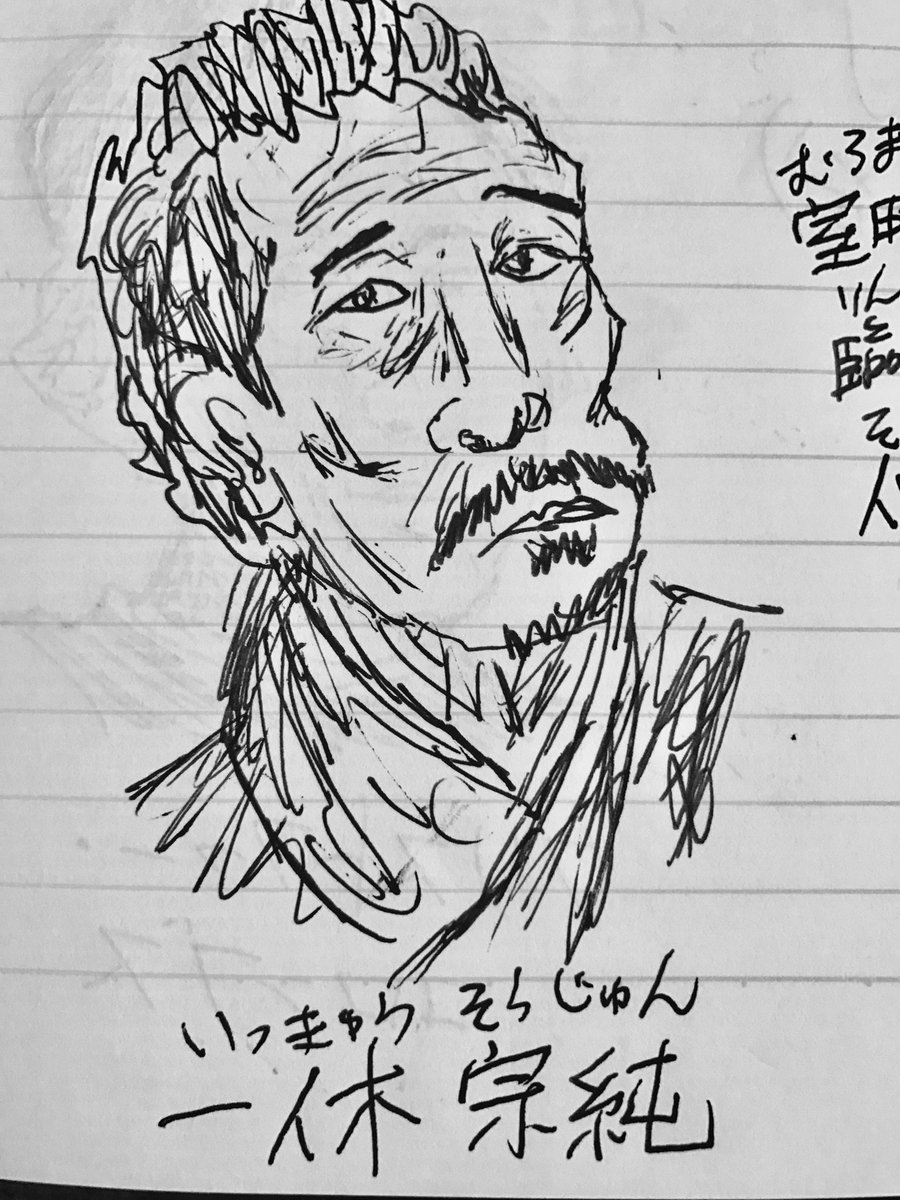 むろま
室
りん
臨
そ
いっきゅう そうじゅん
一休 宗純